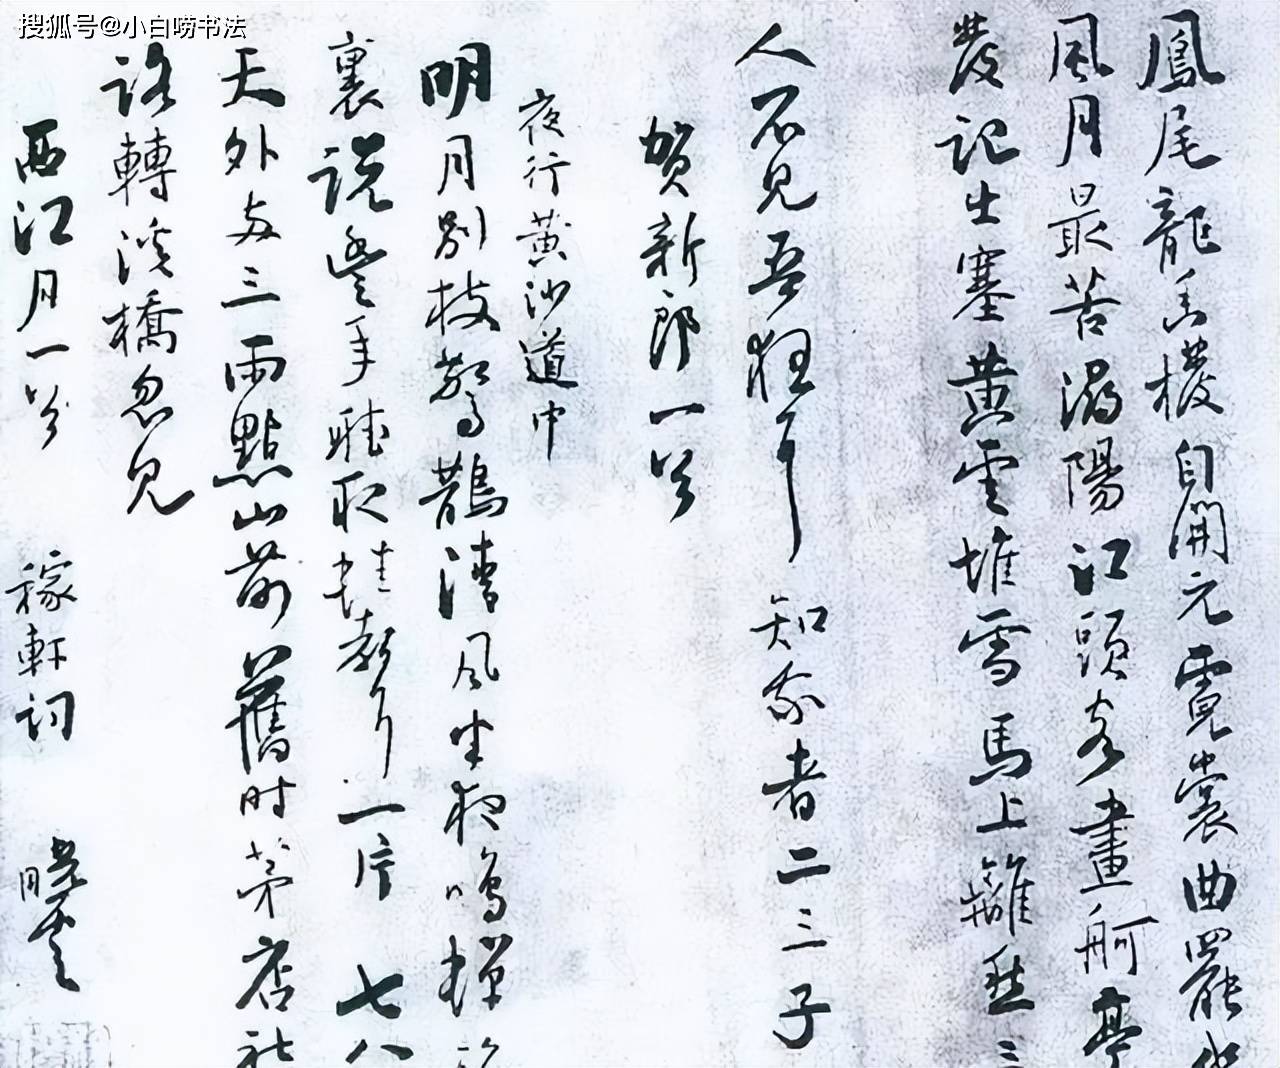 搜狐号@小白唠书法
鳳尾龍香撥自開元霓裳曲罷
風月最苦潯陽江頭客畫舸亭
發記出塞黃雲堆雪馬上離愁三
人不見吾狂耳知我者二三子
賀新郎一首
夜行黃沙道中
明月別枝驚鵲清風半夜鳴蟬
裏說豐年聽取蛙聲一片七八
天外兩三雨點山前舊時茅店社
路轉溪橋忽見
西江月一首 稼軒詞 曉雲